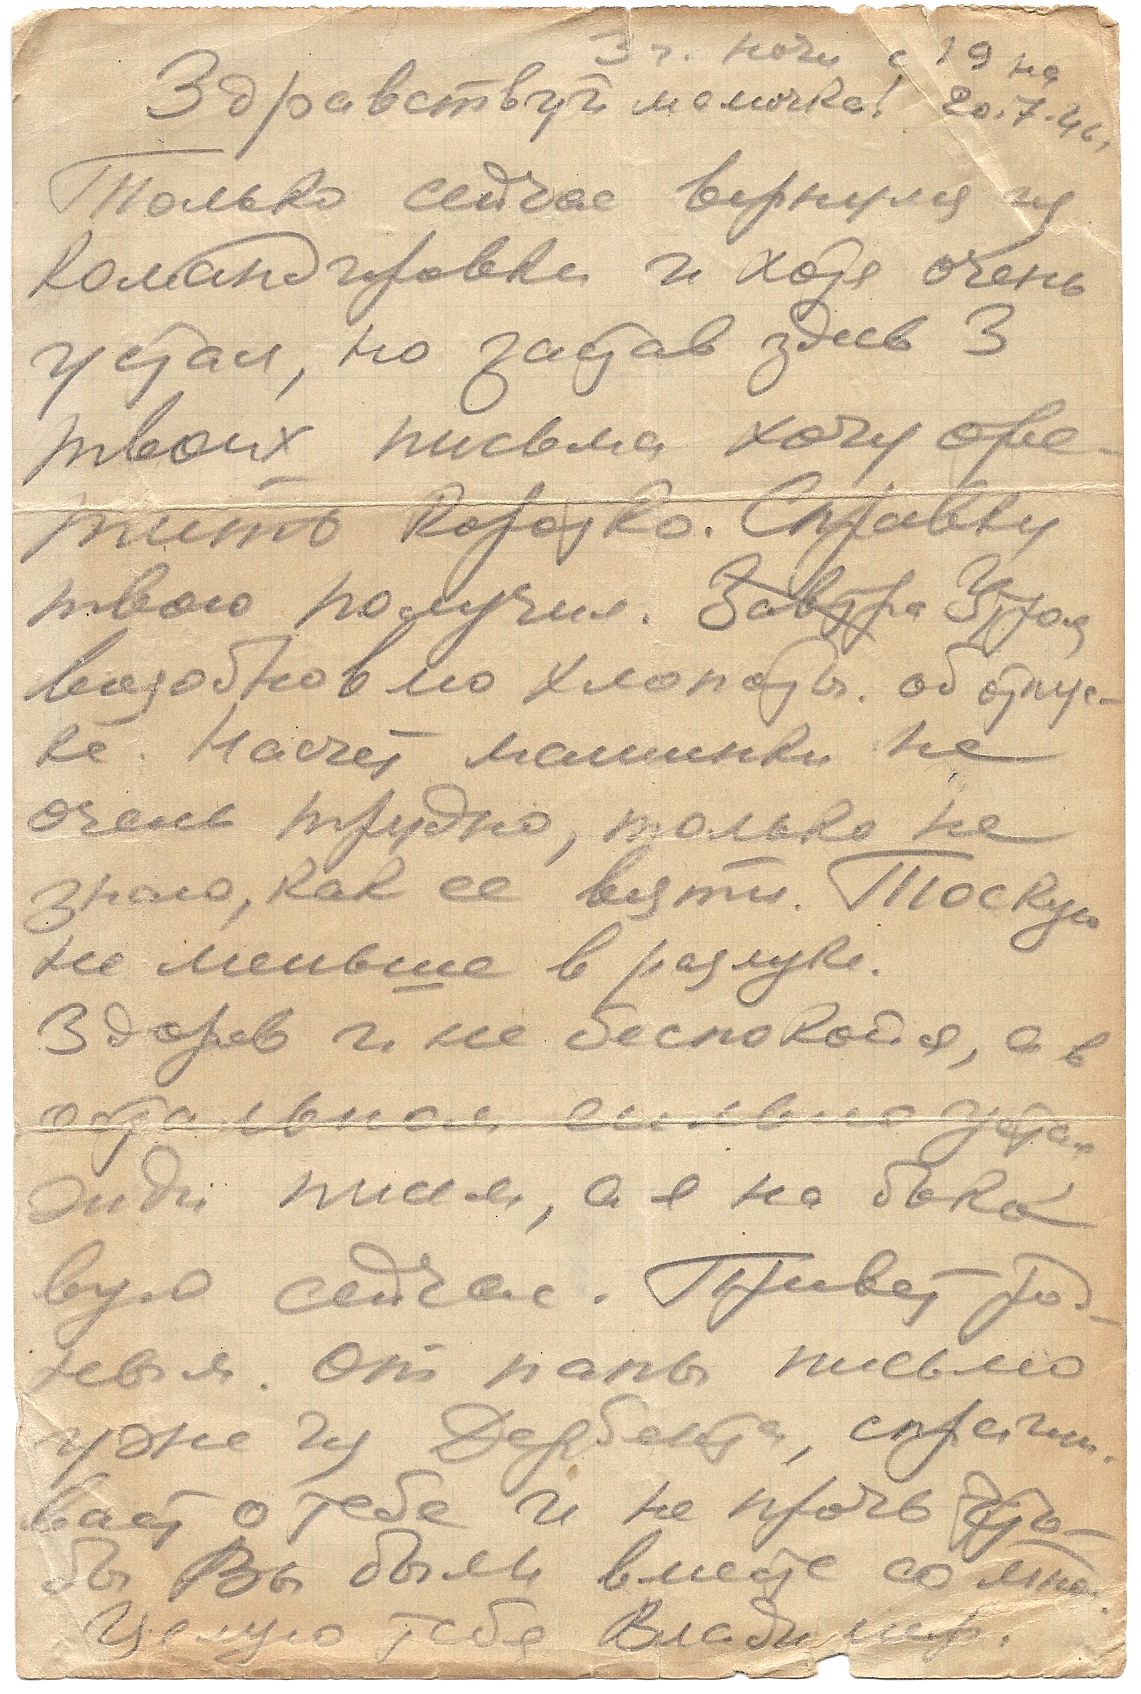 3 ч. ночи с 19 на
Здравствуй мамочка! 20.7.46.
Только сейчас вернулся из
командировки и хотя очень
устал, но застав здесь 3
твоих письма хочу отве-
тить коротко. Справку
твою получил. Завтра Утром
возобновлю хлопоты об отпус-
ке. Насчет машинки не
очень трудно, только не
знаю, как ее везти. Тоскую
не меньше в разлуке.
Здоров и не беспокойся, а в
остальном сильно устал.
Эйди писал, а я на
сейчас. Привет род-
ным. От папы письмо
уже из Дербента, спраши-
вает о тебе и не прочь что-
бы Вы были вместе со мной.
Целую тебя Владимир.